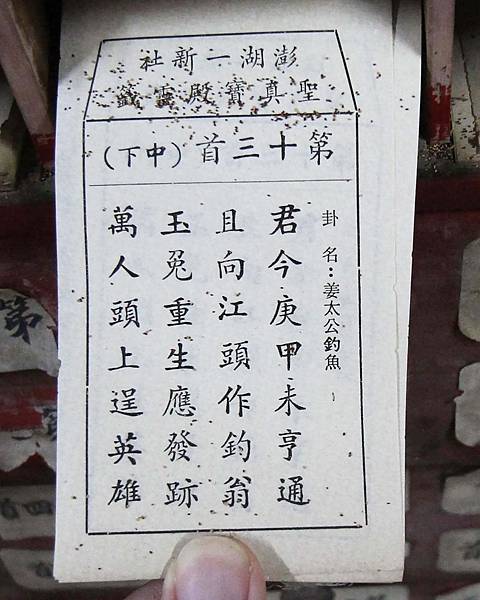 澎湖一新社
聖真寶殿靈籤
第十三首（中下）
卦名：姜太公釣魚
君今庚甲未亨通
且向江頭作釣翁
玉兔重生應發跡
萬人頭上逞英雄